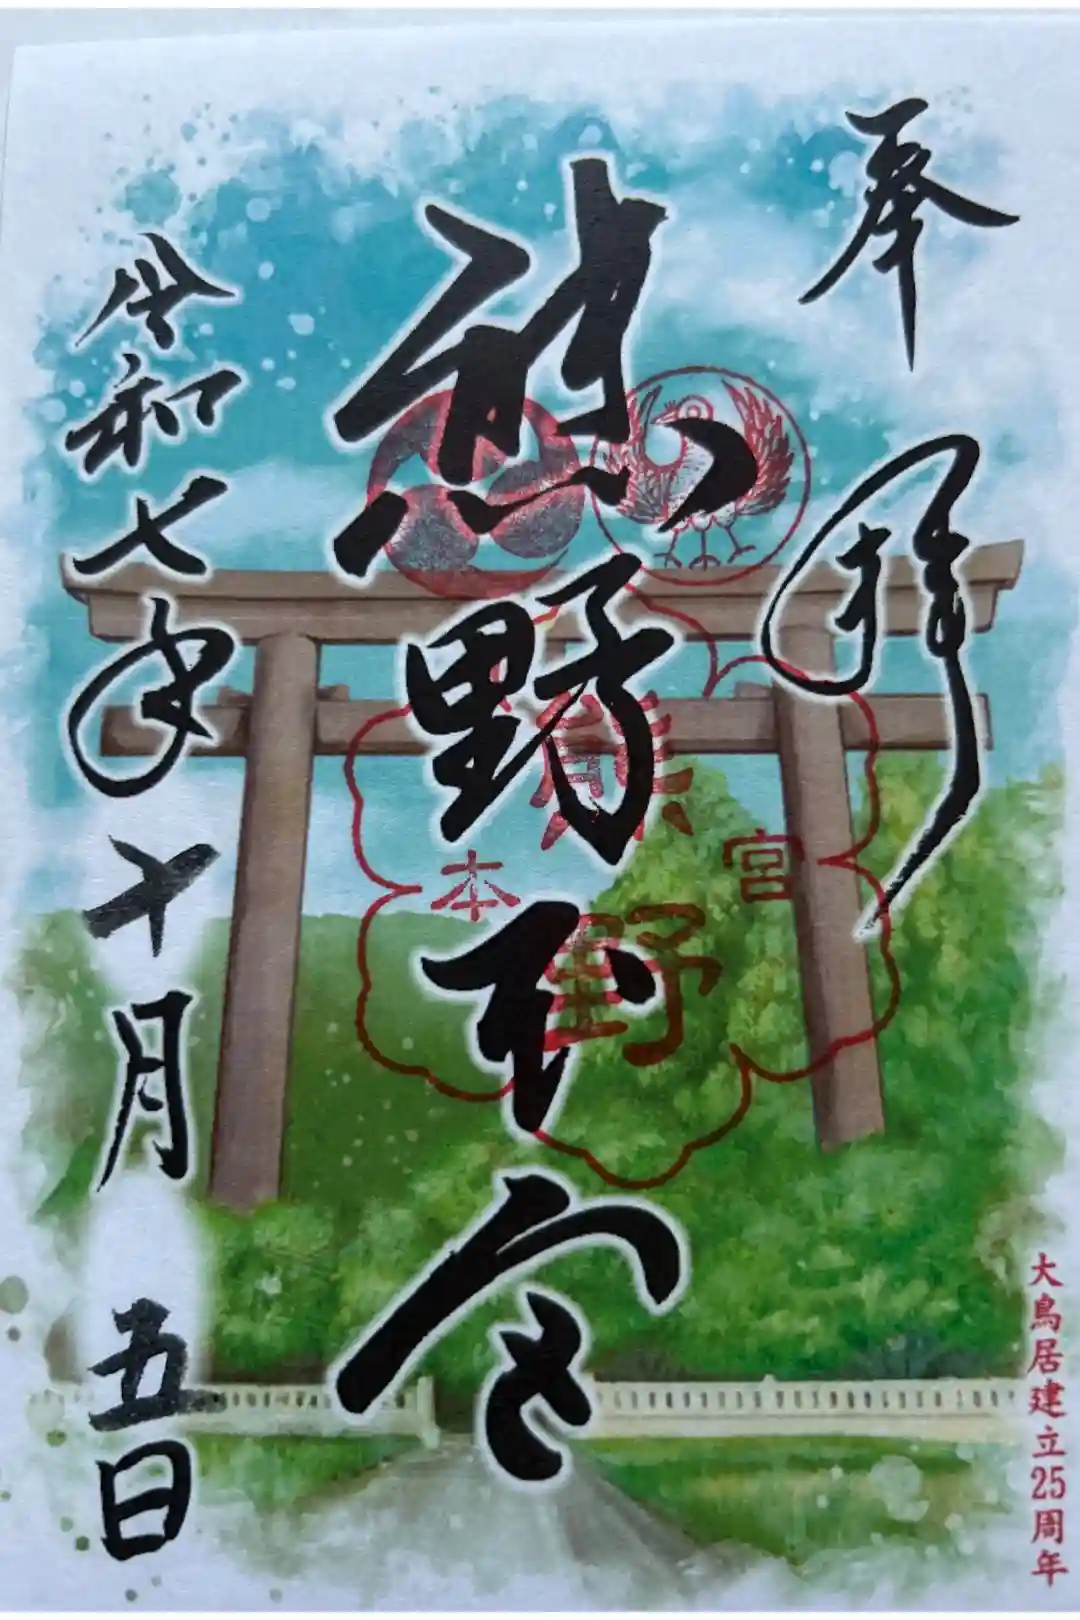 奉拝
熊野本宮
熊野
本宮
令和七年十月五日
大鳥居建立25周年